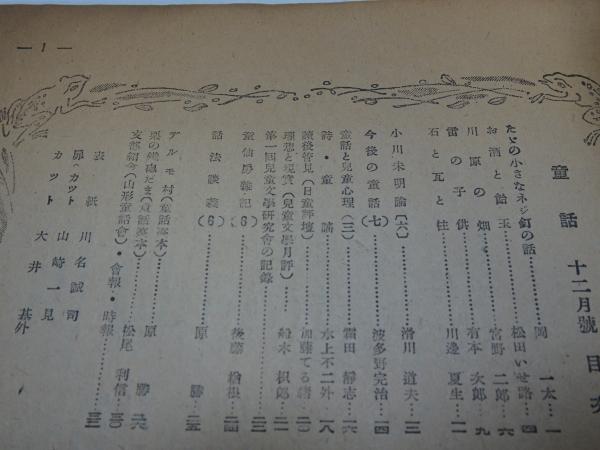 — 1 —
童話 十二月號 目次
たつの小さなネジ釘の話……岡 一太…一
お酒と飴玉……松田いせ路…四
川原の畑……宮野二郎…六
雷の子供……有本次郎…九
石と瓦と住……川邊夏生…一一
小川未明論(六)……滑川道夫…一二
今後の童話(七)……波多野完治…一四
童話と兒童心理(三)……霜田靜志…一六
詩・童謠……水上不二外…一八
讀後管見(日童評壇)……加藤てる緒…二〇
理想と現實(兒童文學月評)……船木枳郎…二一
第一回兒童文學研究會の記錄……二三
童仙房雜記(6)……後藤楢根…二四
話法談義(6)……原 勝…二五
アルモ村(童話臺本)……原 勝…二六
栗の鐵砲だま(童話臺本)……松尾利信…三〇
支部紹介(山形童話會)・會報・時報……三二
表紙 川名誠司
扉カット 山崎一見
カット 大井 基外